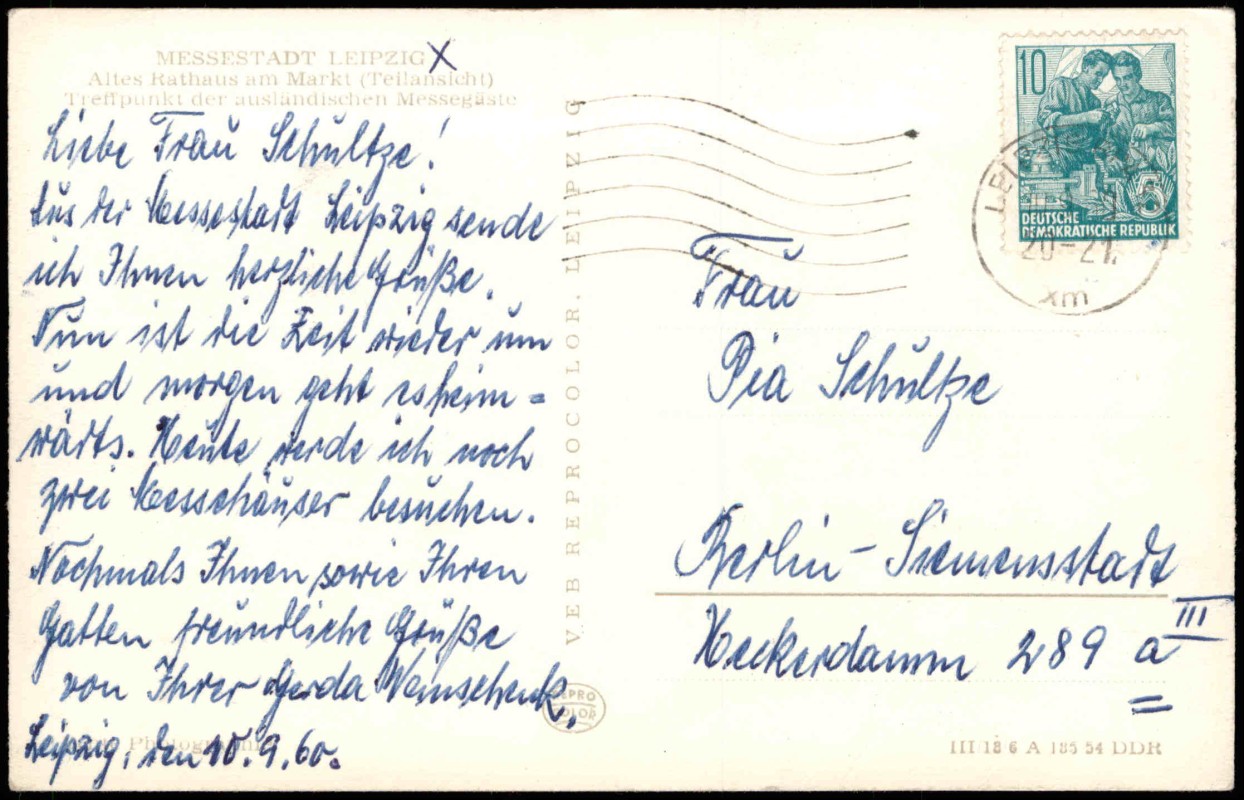 MESSESTADT LEIPZIG X
Altes Rathaus am Markt (Teilansicht)
Treffpunkt der ausländischen Messegäste
Liebe Frau Schultze!
Aus der Messestadt Leipzig sende
ich Ihnen herzliche Grüße.
Nun ist die Zeit wieder um
und morgen geht es heim=
wärts. Heute werde ich noch
zwei Messehäuser besuchen.
Nochmals Ihnen sowie Ihren
Gatten freundliche Grüße
von Ihrer Gerda Weinschenk.
Leipzig, den 10.9.60.
VEB REPROCOLOR. LEIPZIG
REPRO
COLOR
10
5
DEUTSCHE
DEMOKRATISCHE REPUBLIK
LEIPZIG
20-21.
xm
Frau
Pia Schultze
Berlin-Siemensstadt
Heckerdamm 289 a III
III 18 6 A 185 54 DDR